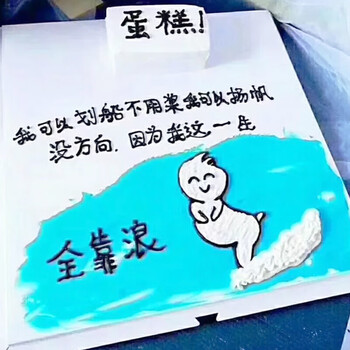 蛋糕!
我可以划船不用桨我可以扬帆
没方向,因为我这一生
全靠浪